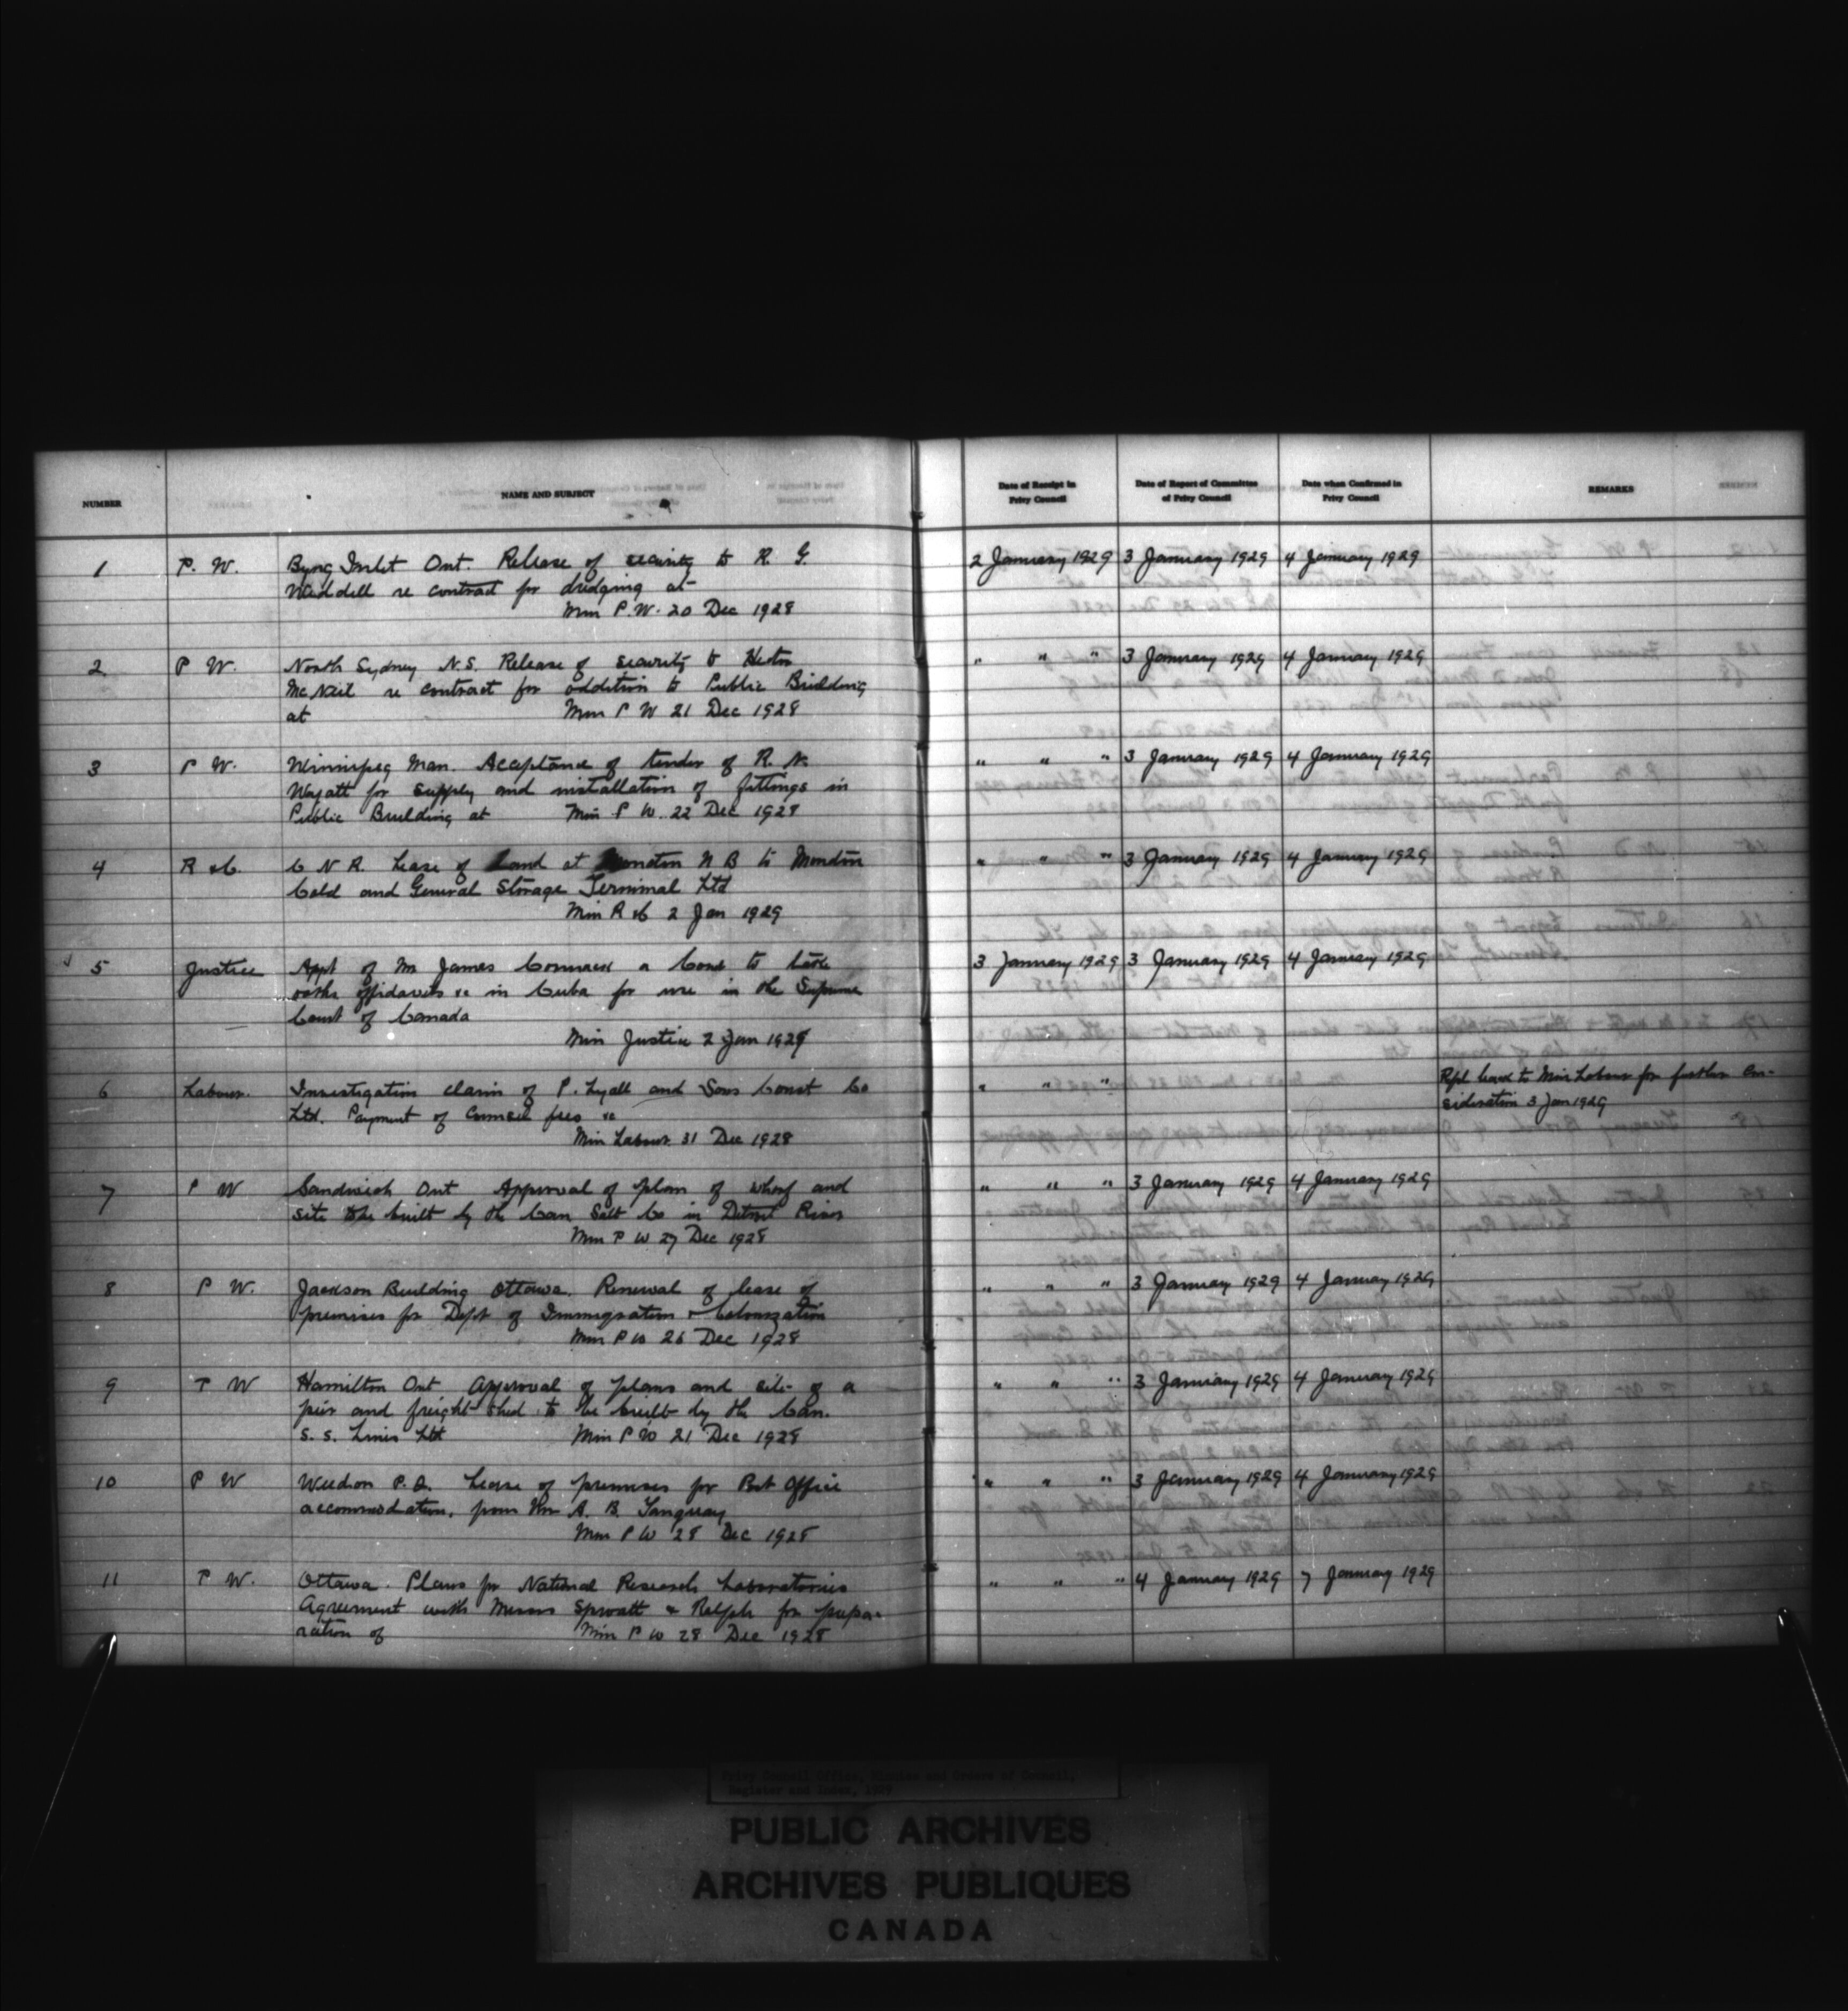 NUMBER
NAME AND SUBJECT
Date of Receipt in Privy Council
Date of Report of Committee of Privy Council
Date when Confirmed in Privy Council
REMARKS
1 P. W. Byng Inlet Ont. Release of security to R. G. 2 January 1929 3 January 1929 4 January 1929
Weddell re contract for dredging at
Min P.W. 20 Dec 1928
2 P W. North Sydney N.S. Release of security to Hector " " " 3 January 1929 4 January 1929
McNeil re contract for addition to Public Building
at Min P W 21 Dec 1928
3 P W. Winnipeg Man. Acceptance of tender of R. N. " " " 3 January 1929 4 January 1929
Wyatt for supply and installation of fittings in
Public Building at Min P W. 22 Dec 1928
4 R &C. C N R. Lease of Land at Moncton N B to Moncton " " " 3 January 1929 4 January 1929
Cold and General Storage Terminal Ltd
Min R &C 2 Jan 1929
5 Justice Appt of Mr James Cormack a Comr to take 3 January 1929 3 January 1929 4 January 1929
oaths affidavits &c in Cuba for use in the Supreme
Court of Canada
Min Justice 2 Jan 1929
6 Labour. Investigation claim of P. Lyall and Sons Const Co " " " Refd back to Min Labour for further con-
Ltd. Payment of Counsel fees &c sideration 3 Jan 1929
Min Labour 31 Dec 1928
7 P W Sandwich Ont Approval of plan of wharf and " " " 3 January 1929 4 January 1929
site to be built by the Can Salt Co in Detroit River
Min P W 27 Dec 1928
8 P W. Jackson Building Ottawa. Renewal of lease of " " " 3 January 1929 4 January 1929
premises for Dept of Immigration & Colonization
Min P W 26 Dec 1928
9 P W Hamilton Ont Approval of plans and site of a " " " 3 January 1929 4 January 1929
pier and freight shed to be built by the Can.
S. S. Lines Ltd Min P W 21 Dec 1928
10 P W Weedon P.Q. Lease of premises for Post Office " " " 3 January 1929 4 January 1929
accommodation, from Wm A. B. Tanguay
Min P W 28 Dec 1928
11 P W. Ottawa. Plans for National Research Laboratories " " " 4 January 1929 7 January 1929
Agreement with Messrs Sproatt & Rolph for prepa-
ration of Min P W 28 Dec 1928
Privy Council Office, Minutes and Orders of Council,
Register and Index, 1929
PUBLIC ARCHIVES
ARCHIVES PUBLIQUES
CANADA